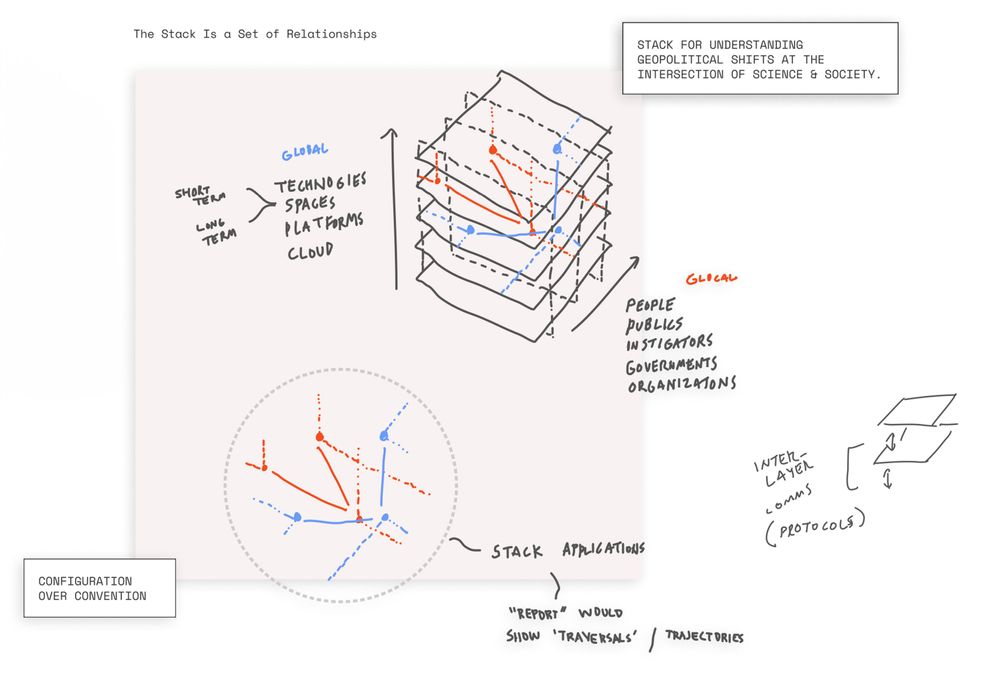 The Stack Is a Set of Relationships
STACK FOR UNDERSTANDING
GEOPOLITICAL SHIFTS AT THE
INTERSECTION OF SCIENCE & SOCIETY.
GLOBAL
SHORT
TERM
LONG
TERM
TECHNOGIES
SPACES
PLATFORMS
CLOUD
GLOCAL
PEOPLE
PUBLICS
INSTIGATORS
GOVERNMENTS
ORGANIZATONS
INTER-
LAYER
COMMS
(PROTOCOLS)
STACK APPLICATIONS
"REPORT" WOULD
SHOW 'TRAVERSALS' / TRAJECTORIES
CONFIGURATION
OVER CONVENTION